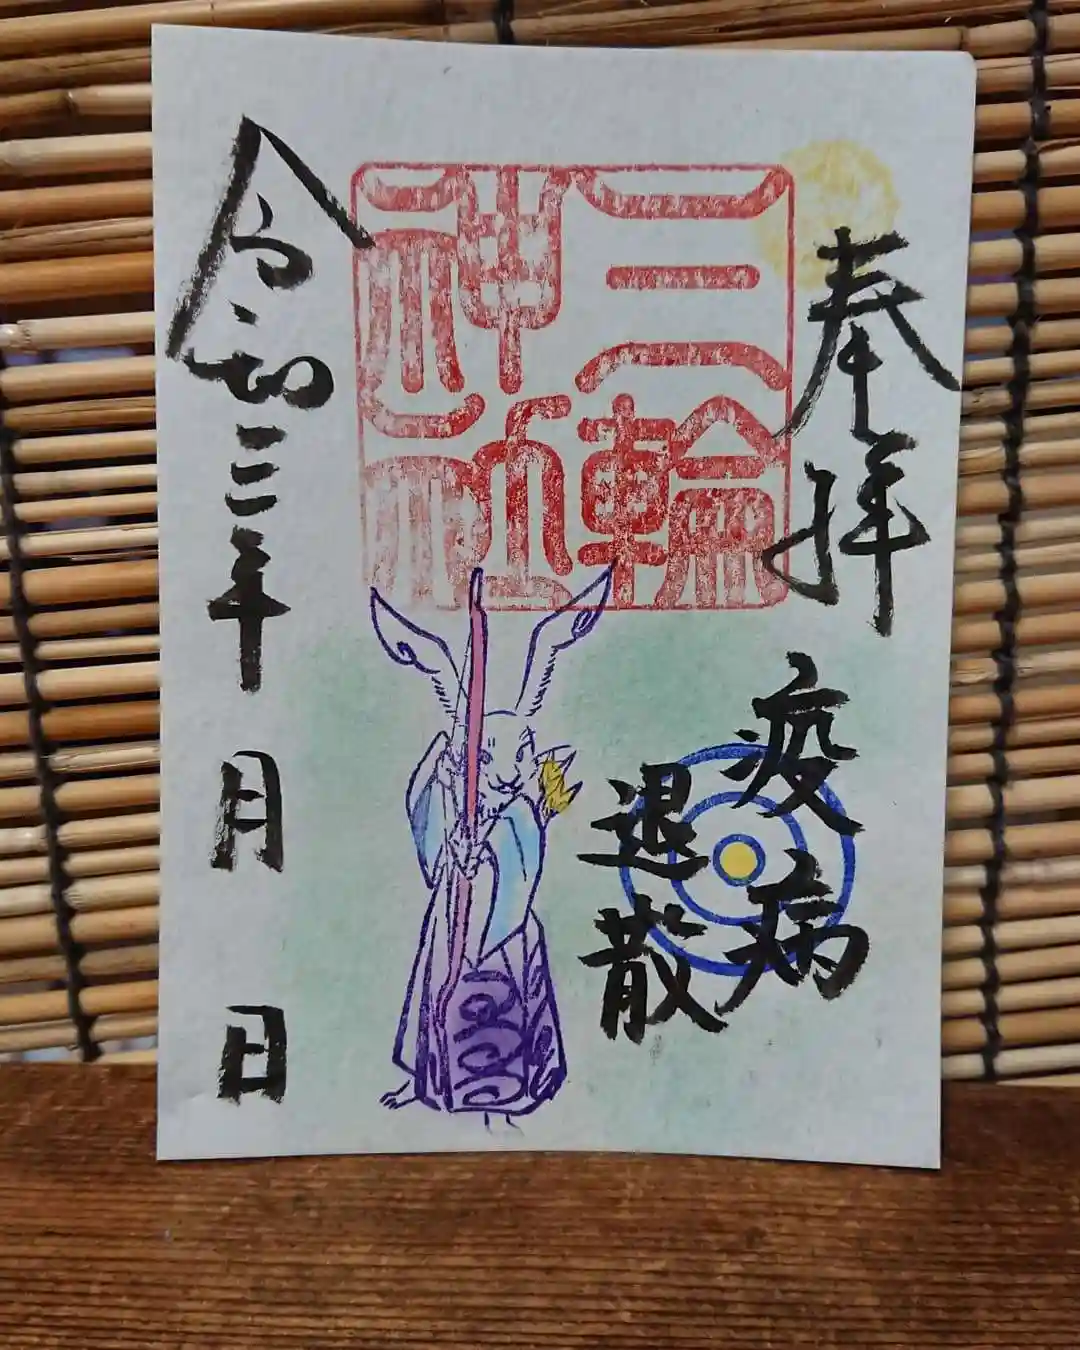 奉拝
疫病
退散
三輪
神社
令和三年 月 日